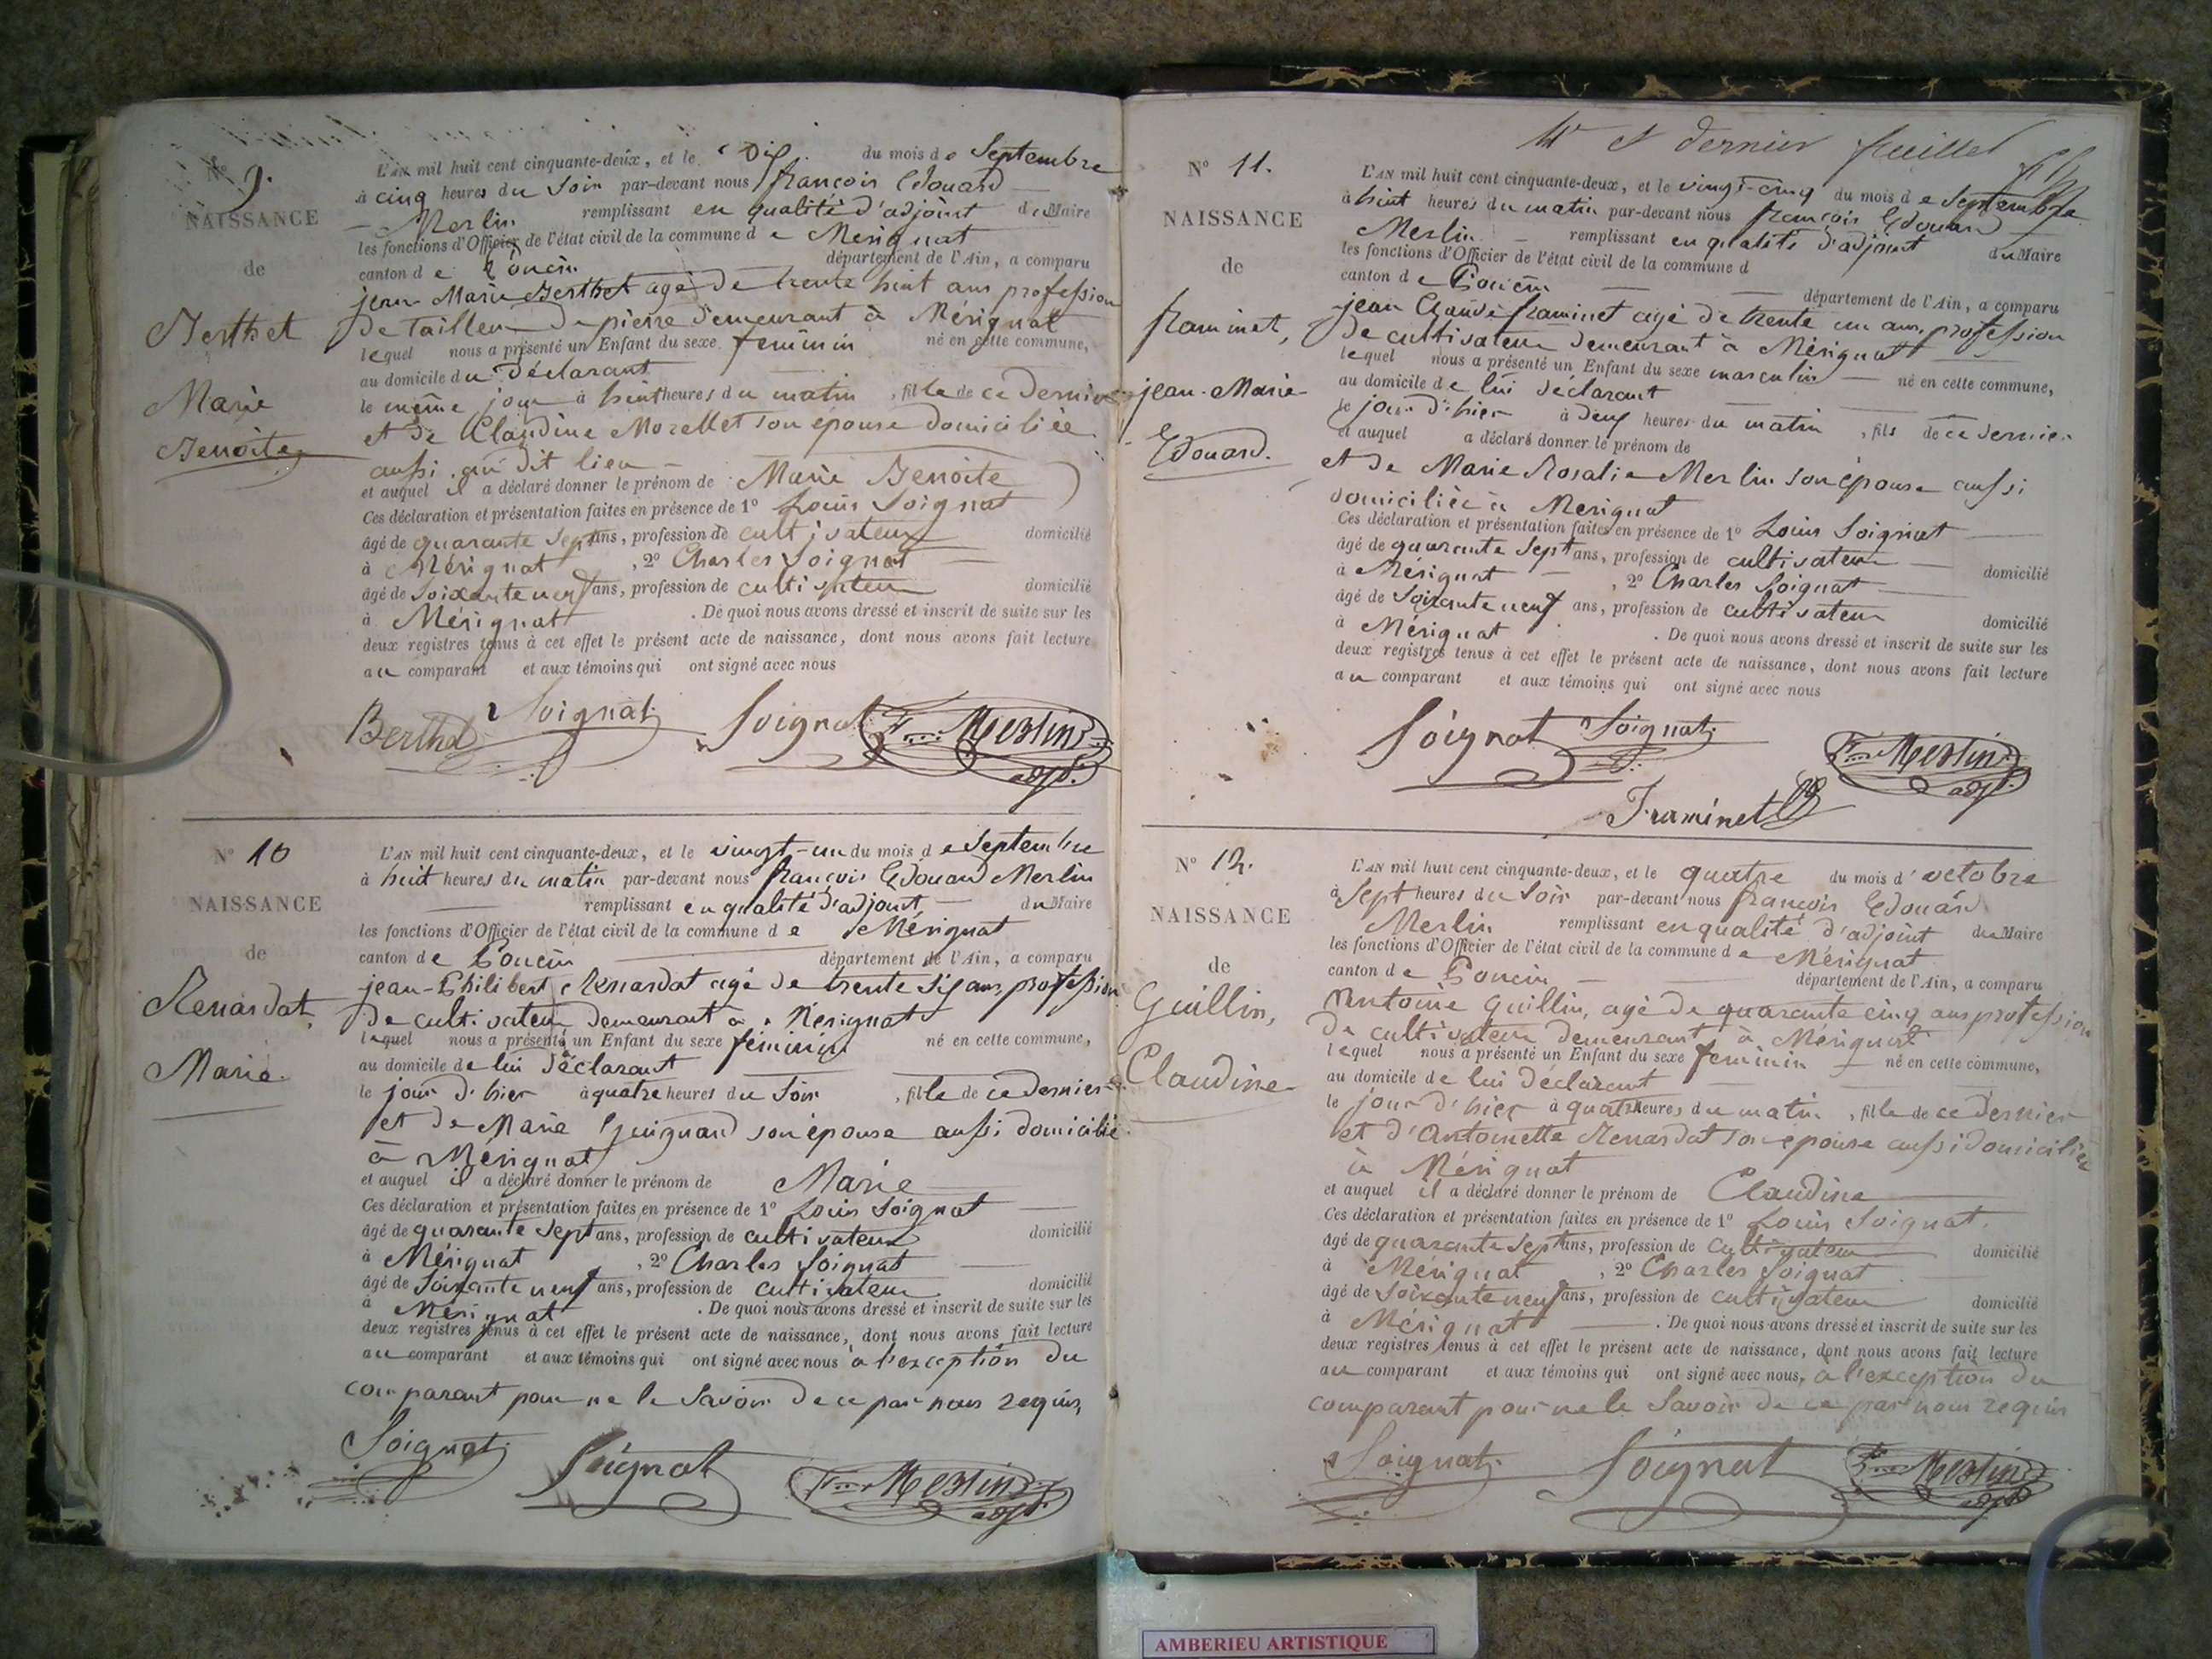 No 9.
NAISSANCE
de
Berthet
Marie
Benoite
L'AN mil huit cent cinquante-deux, et le Dix du mois de Septembre
à cinq heures du Soir par-devant nous françois Edouard
Merlin remplissant en qualité d'adjoint du Maire
les fonctions d'Officier de l'état civil de la commune de Mérignat
canton de Poncin département de l'Ain, a comparu
jean-Marie Berthet agé de trente huit ans profession
de tailleur de pierre demeurant à Mérignat
lequel nous a présenté un Enfant du sexe feminin né en cette commune,
au domicile du Déclarant
le même jour à huit heures du matin, fille de ce dernier
et de Claudine Morellet son épouse domiciliée
aussi au dit lieu
et auquel il a déclaré donner le prénom de Marie Benoite
Ces déclaration et présentation faites en présence de 1º Louis Soignat
âgé de quarante Sept ans, profession de cultivateur domicilié
à Mérignat, 2º Charles Soignat
âgé de Soixante neuf ans, profession de cultivateur domicilié
à Mérignat. De quoi nous avons dressé et inscrit de suite sur les
deux registres tenus à cet effet le présent acte de naissance, dont nous avons fait lecture
au comparant et aux témoins qui ont signé avec nous
Berthet Soignat Soignat Merlin adjt.
Nº 10
NAISSANCE
de
Renardat
Marie
L'AN mil huit cent cinquante-deux, et le vingt-un du mois de Septembre
à huit heures du matin par-devant nous françois Edouard Merlin
remplissant en qualité d'adjoint du Maire
les fonctions d'Officier de l'état civil de la commune de Mérignat
canton de Poncin département de l'Ain, a comparu
jean-Philibert Renardat agé de trente six ans, profession
de cultivateur demeurant à Mérignat
lequel nous a présenté un Enfant du sexe féminin né en cette commune,
au domicile de lui Déclarant
le jour d'hier à quatre heures du Soir, fille de ce dernier
et de Marie Guignard son épouse aussi domicilié
à Mérignat
et auquel il a déclaré donner le prénom de Marie
Ces déclaration et présentation faites en présence de 1º Louis Soignat
âgé de quarante Sept ans, profession de cultivateur domicilié
à Mérignat, 2º Charles Soignat
âgé de Soixante neuf ans, profession de cultivateur domicilié
à Mérignat. De quoi nous avons dressé et inscrit de suite sur les
deux registres tenus à cet effet le présent acte de naissance, dont nous avons fait lecture
au comparant et aux témoins qui ont signé avec nous à l'exception du
comparant pour ne le Savoir de ce par nous requis,
Soignat Soignat Merlin adjt.
et dernier feuillet
Nº 11.
NAISSANCE
de
framinet,
jean-Marie
Edouard.
L'AN mil huit cent cinquante-deux, et le vingt-cinq du mois de Septembre
à huit heures du matin par-devant nous françois Edouard
Merlin remplissant en qualité d'adjoint du Maire
les fonctions d'Officier de l'état civil de la commune d
canton de Poncin département de l'Ain, a comparu
jean Claude framinet agé de trente un ans, profession
de cultivateur demeurant à Mérignat
lequel nous a présenté un Enfant du sexe masculin né en cette commune,
au domicile de lui déclarant
le jour d'hier à deux heures du matin, fils de ce dernier
et auquel a déclaré donner le prénom de
et de Marie Rosalie Merlin son épouse aussi
domiciliée à Merignat
Ces déclaration et présentation faites en présence de 1º Louis Soignat
âgé de quarante Sept ans, profession de cultivateur domicilié
à Mérignat, 2º Charles Soignat
âgé de Soixante neuf ans, profession de cultivateur domicilié
à Mérignat. De quoi nous avons dressé et inscrit de suite sur les
deux registres tenus à cet effet le présent acte de naissance, dont nous avons fait lecture
au comparant et aux témoins qui ont signé avec nous
Soignat Soignat Merlin adjt.
Framinet
Nº 12.
NAISSANCE
de
Guillin,
Claudine
L'AN mil huit cent cinquante-deux, et le quatre du mois d'octobre
à Sept heures du Soir par-devant nous françois Edouard
Merlin remplissant en qualité d'adjoint du Maire
les fonctions d'Officier de l'état civil de la commune de Mérignat
canton de Poncin département de l'Ain, a comparu
Antoine Guillin, agé de quarante cinq ans profession
de cultivateur demeurant à Mérignat
lequel nous a présenté un Enfant du sexe feminin né en cette commune,
au domicile de lui déclarant
le jour d'hier à quatre heures du matin, fille de ce dernier
et d'Antoinette Renardat son épouse aussi domiciliée
à Mérignat
et auquel il a déclaré donner le prénom de Claudine
Ces déclaration et présentation faites en présence de 1º Louis Soignat.
âgé de quarante Sept ans, profession de cultivateur domicilié
à Mérignat, 2º Charles Soignat
âgé de Soixante neuf ans, profession de cultivateur domicilié
à Mérignat. De quoi nous avons dressé et inscrit de suite sur les
deux registres tenus à cet effet le présent acte de naissance, dont nous avons fait lecture
au comparant et aux témoins qui ont signé avec nous, à l'exception du
comparant pour ne le Savoir de ce par nous requis
Soignat Soignat Merlin adjt
AMBERIEU ARTISTIQUE